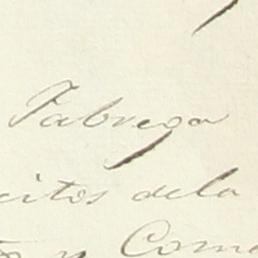 Fabrega
citos dela
y Come